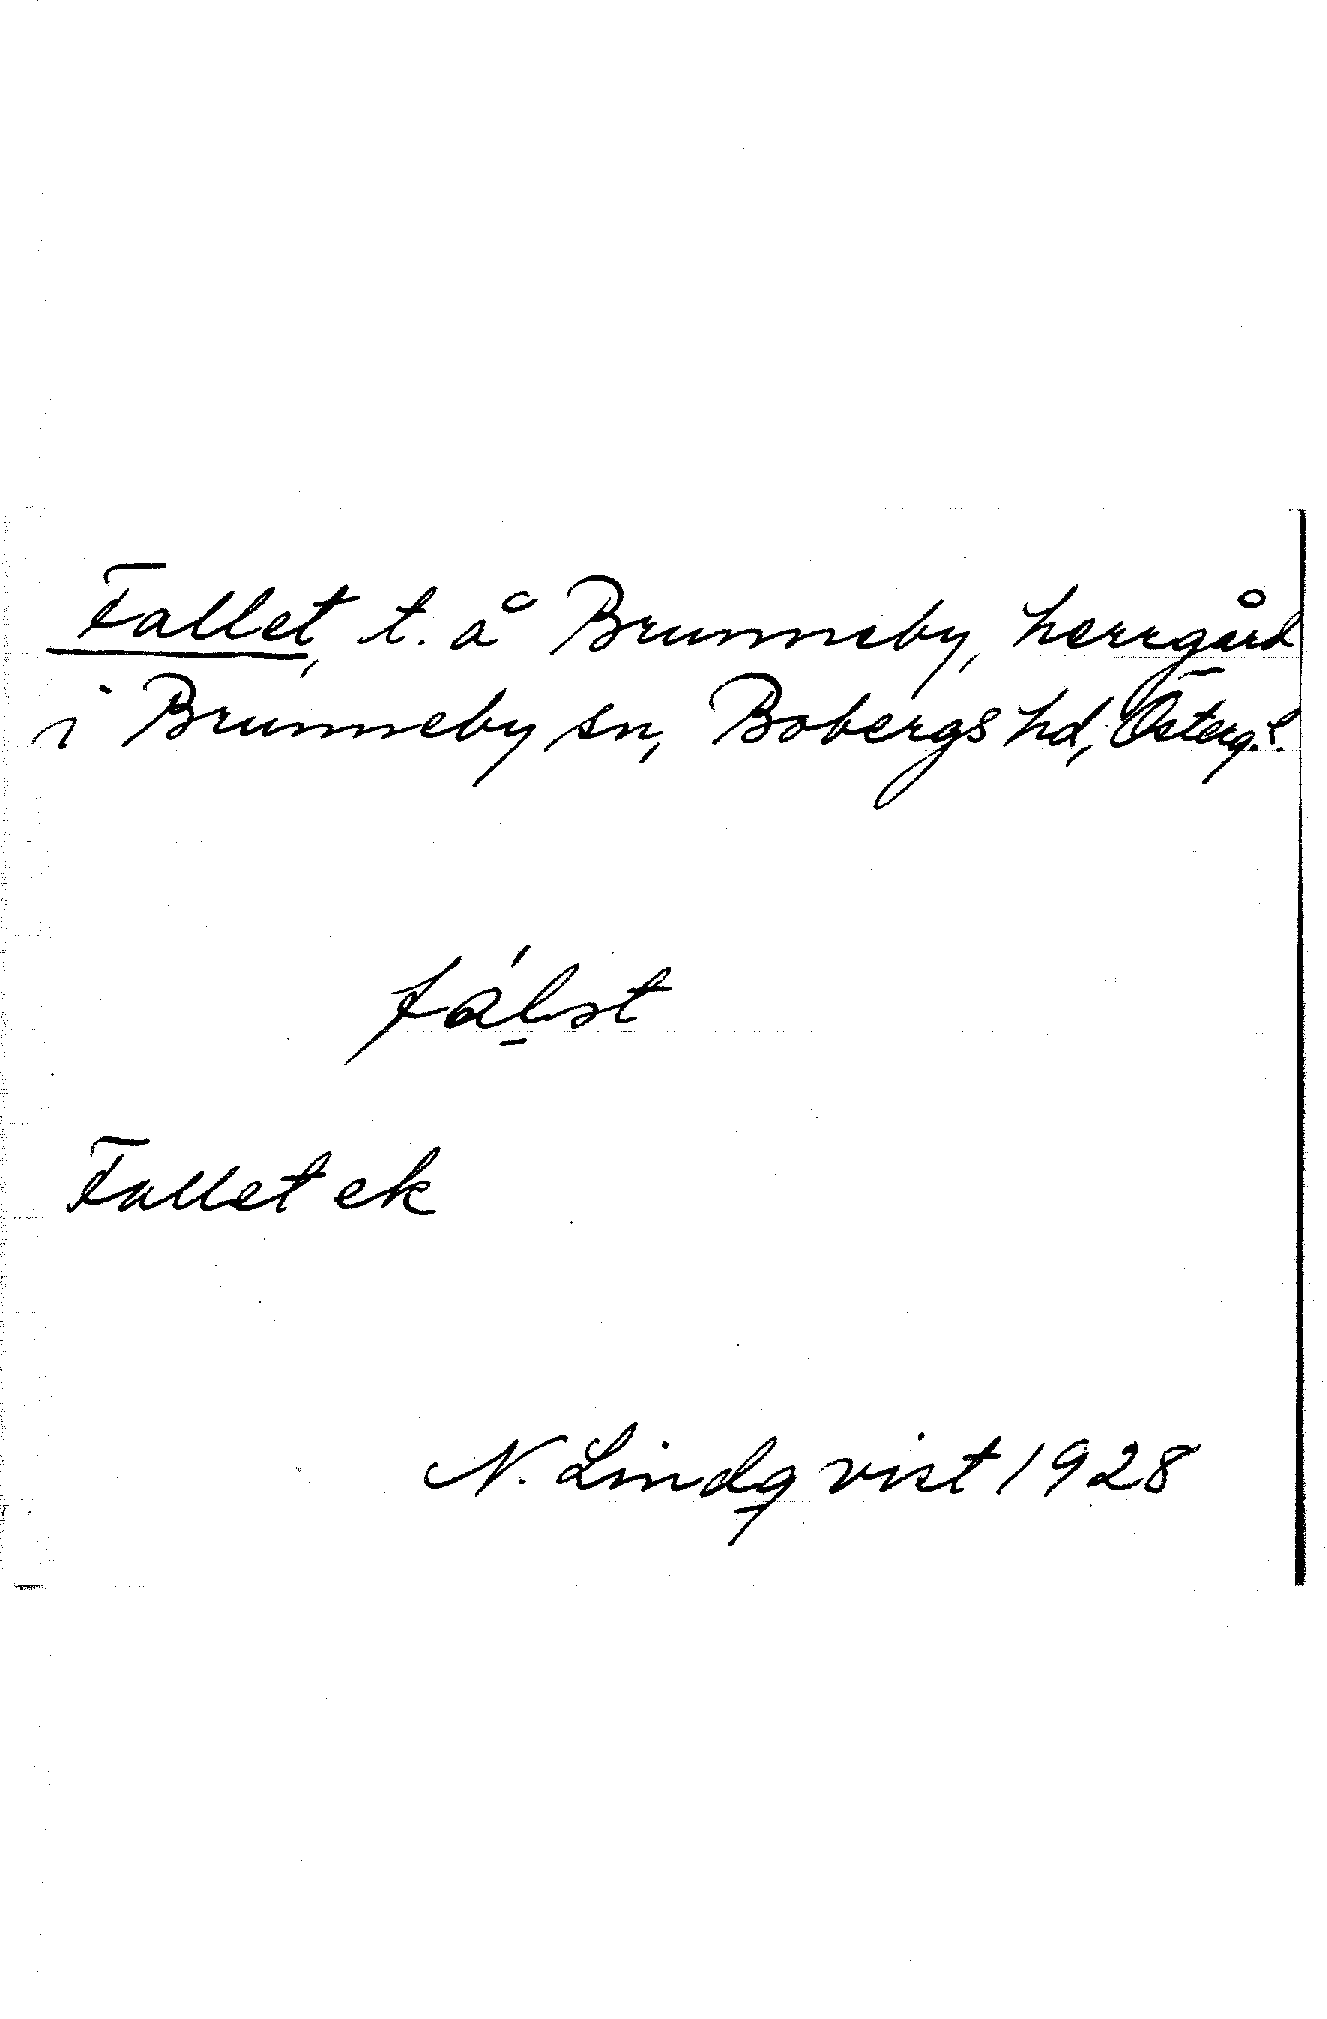 Fallet, t. å Brunneby, herrgård
i Brunneby sn, Bobergs hd, Österg.l.
fál̠st
Fallet ek
N. Lindqvist 1928